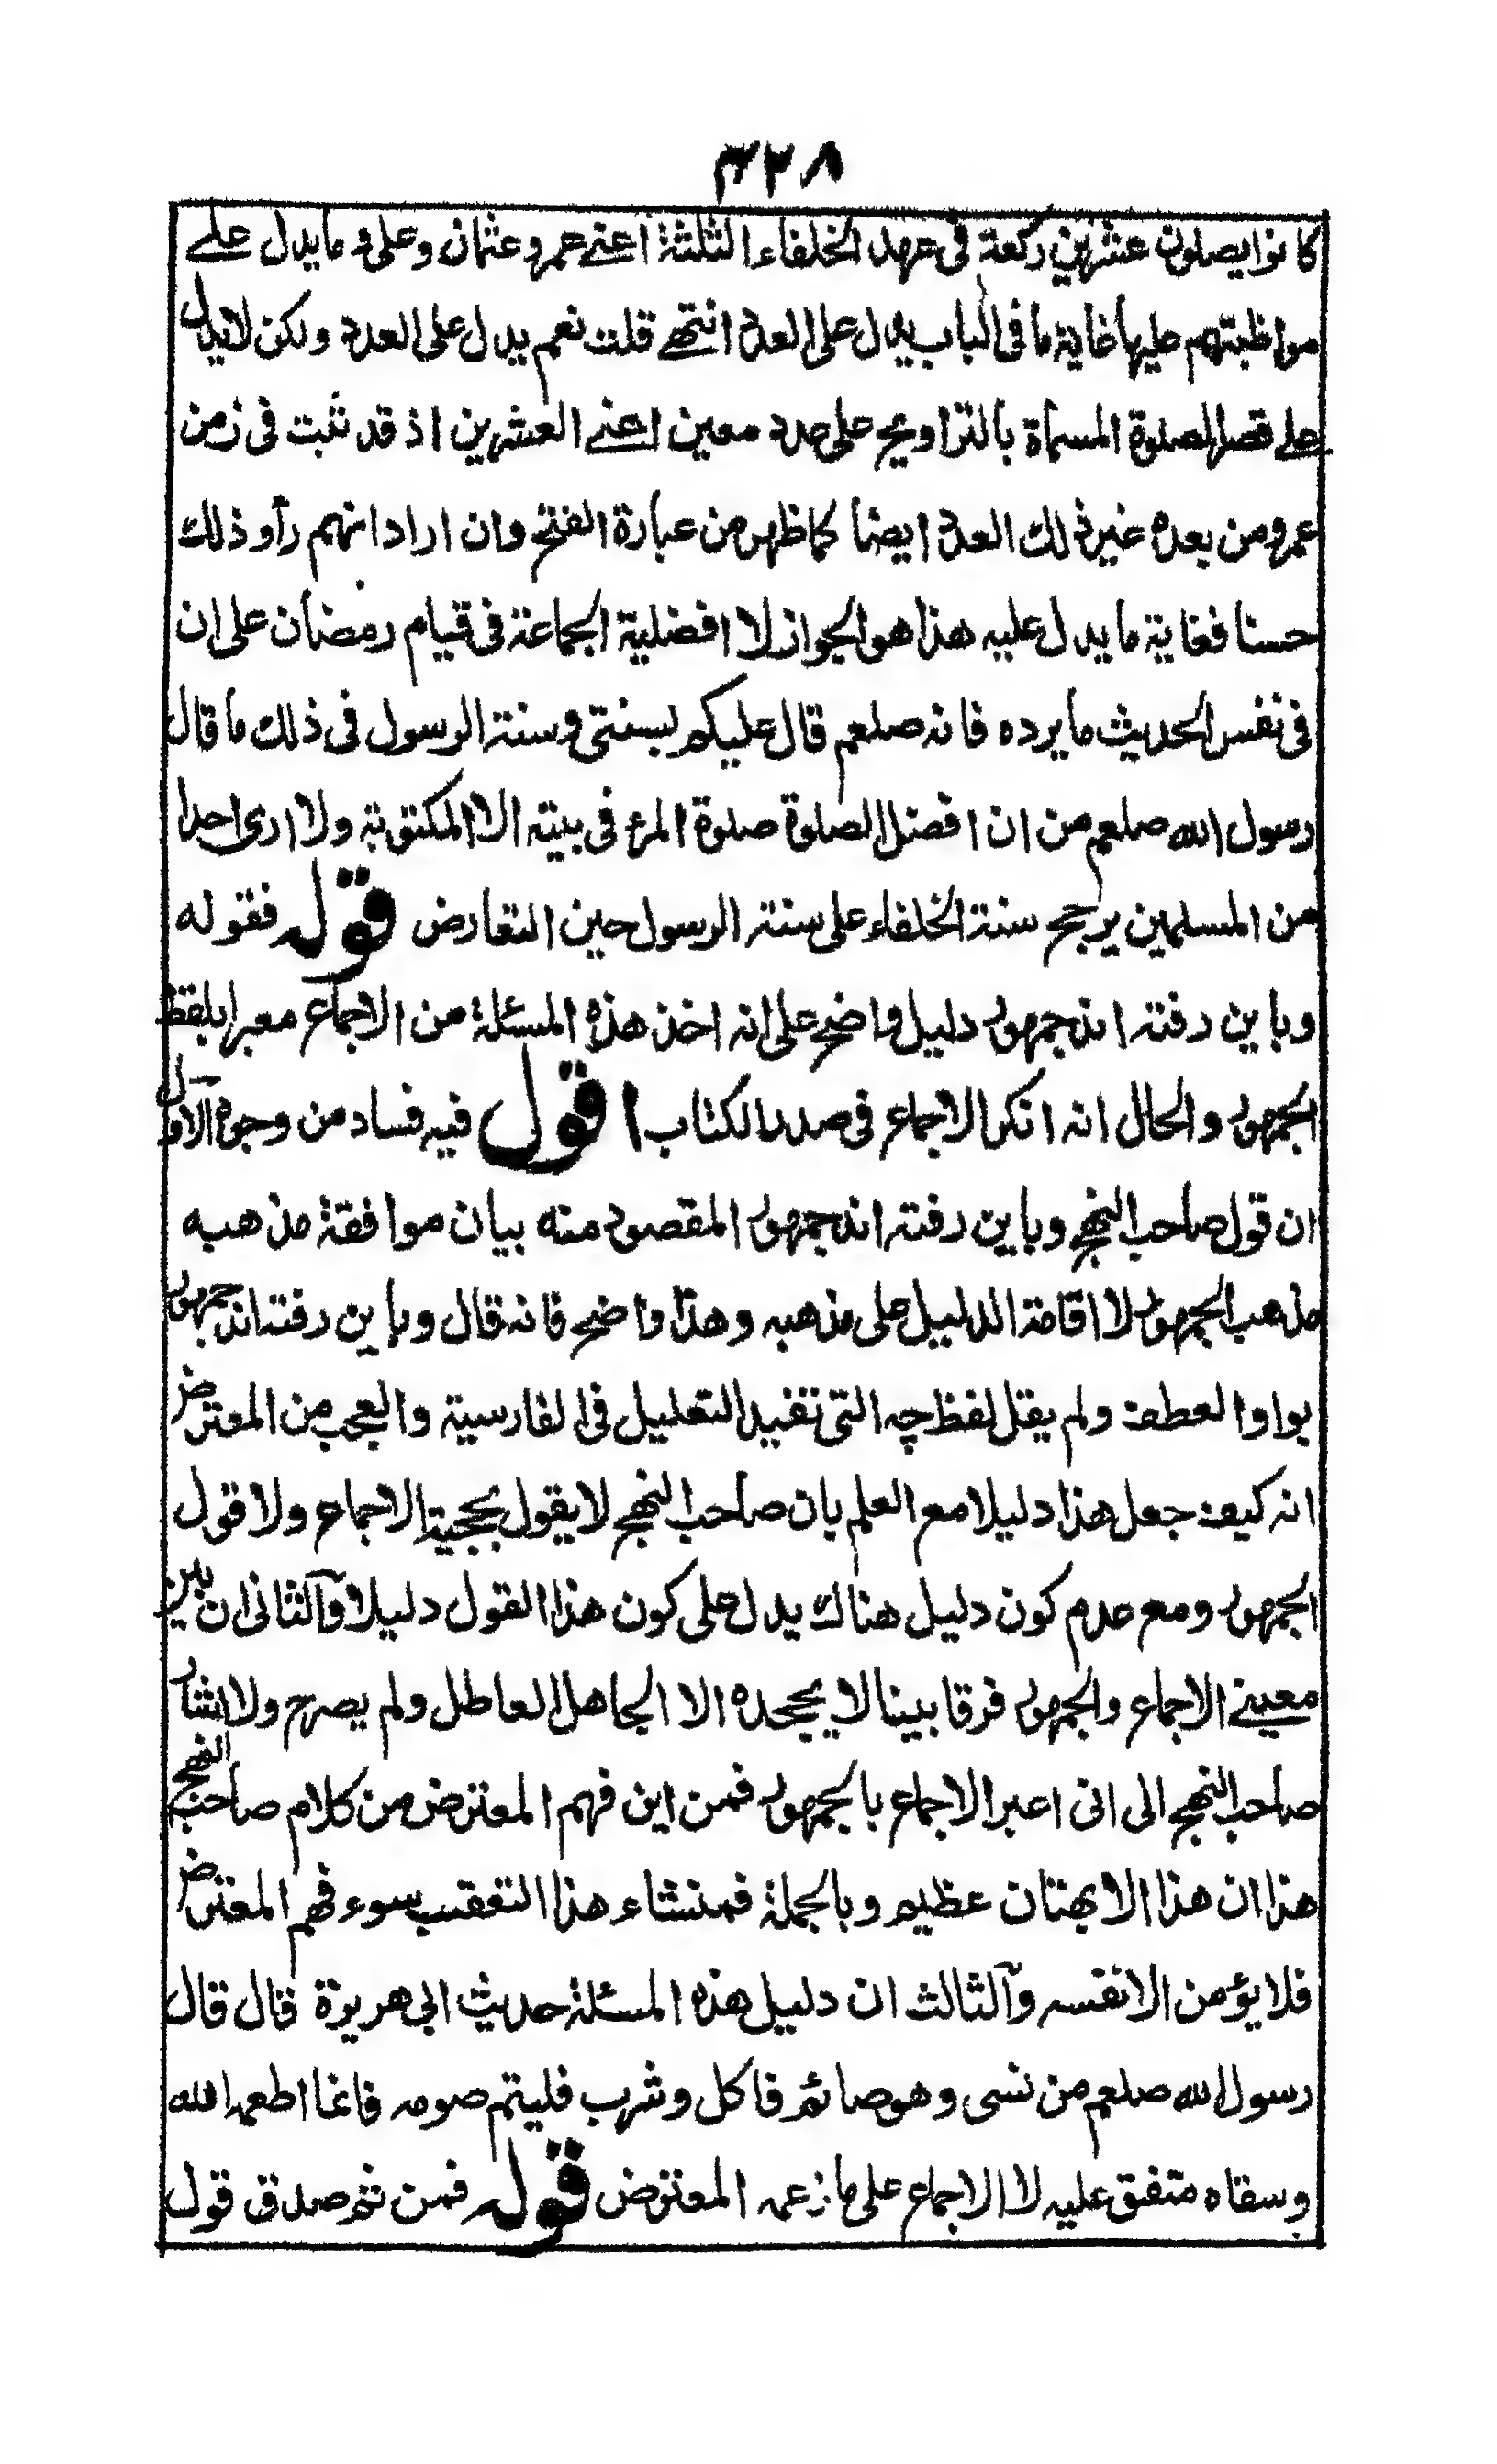 ٣٢٨
كانوا يصلون عشرين ركعة فى عهد الخلفاء الثلثة اعنے عمر و عثمان وعلى و ما يدل علے
مواظبتهم عليها غاية ما فى الباب يدل على العدد انتهے قلت نعم يدل على العدد ولكن لا يدل
علے قصر الصلوة المسماة بالتراويح على عدد معين اعنے العشرين اذ قد ثبت فى زمن
عمر ومن بعده غير ذلك العدد ايضا كما ظهر من عبارة الفتح وان اراد انهم رأو ذلك
حسنا فغاية ما يدل عليه هذا هو الجواز لا افضلية الجماعة فى قيام رمضان على ان
فى نفس الحديث ما يرده فانه صلعم قال عليكم بسنتى وسنة الرسول فى ذلك ما قال
رسول الله صلعم من ان افضل الصلوة صلوة المرء فى بيته الا المكتوبة ولا ارى احدا
من المسلمين يرجح سنة الخلفاء على سنة الرسول حين التعارض قوله فقوله
وباين رفته اند جمهور دليل واضح على انه اخذ هذه المسئلة من الاجماع معبرا بلفظ
الجمهور والحال انه انكر الاجماع فى صدر الكتاب اقول فيه فساد من وجوه الاول
ان قول صاحب النهج وباين رفته اند جمهور المقصود منه بيان موافقة مذهبه
مذهب الجمهور لا اقامة الدليل على مذهبه وهذا واضح فانه قال وباين رفته اند جمهور
بواو العطف ولم يقل لفظ چه التى تفيد التعليل فى الفارسية والعجب من المعترض
انه كيف جعل هذا دليلا مع العلم بان صاحب النهج لا يقول بحجية الاجماع ولا قول
الجمهور ومع عدم كون دليل هناك يدل على كون هذا القول دليلا والثانى ان بين
معينے الاجماع والجمهور فرقا بينا لا يجحده الا الجاهل العاطل ولم يصرح ولا اشار
صاحب النهج الى انى اعبر الاجماع بالجمهور فمن اين فهم المعترض من كلام صاحب النهج
هذا ان هذا الا بهتان عظيم وبالجملة فمنشاء هذا التعقب سوء فهم المعترض
فلا يؤمن الا نفسه والثالث ان دليل هذه المسئلة حديث ابى هريرة قال قال
رسول الله صلعم من نسى وهو صائم فاكل وشرب فليتم صومه فانما اطعمه الله
وسقاه متفق عليه لا الاجماع على ما زعمه المعترض قوله فمن ثم صدق قول